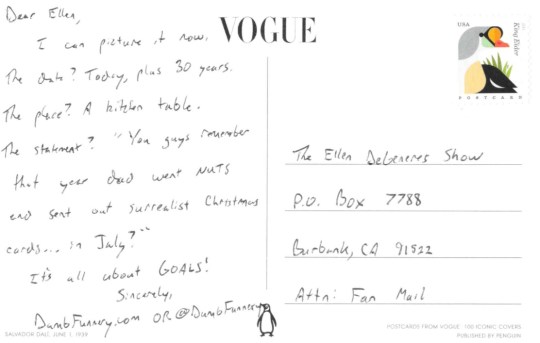 Dear Ellen,
I can picture it now.
The date? Today, plus 30 years.
The place? A kitchen table.
The statement? "You guys remember
that year dad went NUTS
and sent out surrealist Christmas
cards... in July?"
It's all about GOALS!
Sincerely,
DumbFunnery.com OR @DumbFunnery
SALVADOR DALÍ, JUNE 1, 1939
VOGUE
USA
King Eider
POSTCARD
The Ellen DeGeneres Show
P.O. Box 7788
Burbank, CA 91522
Attn: Fan Mail
POSTCARDS FROM VOGUE: 100 ICONIC COVERS
PUBLISHED BY PENGUIN